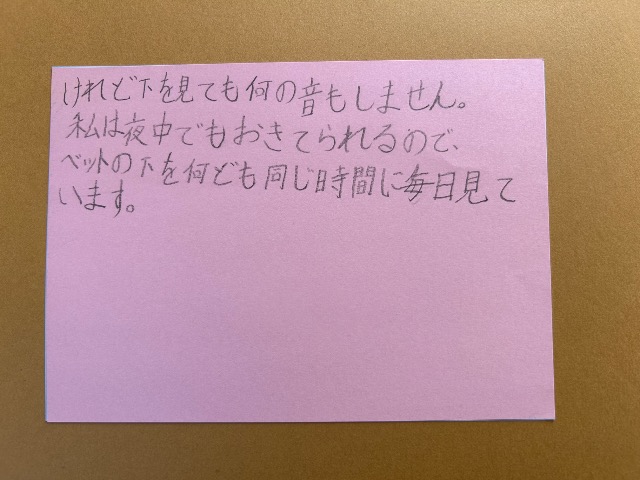 けれど下を見ても何の音もしません。
私は夜中でもおきてられるので、
ベットの下を何ども同じ時間に毎日見て
います。